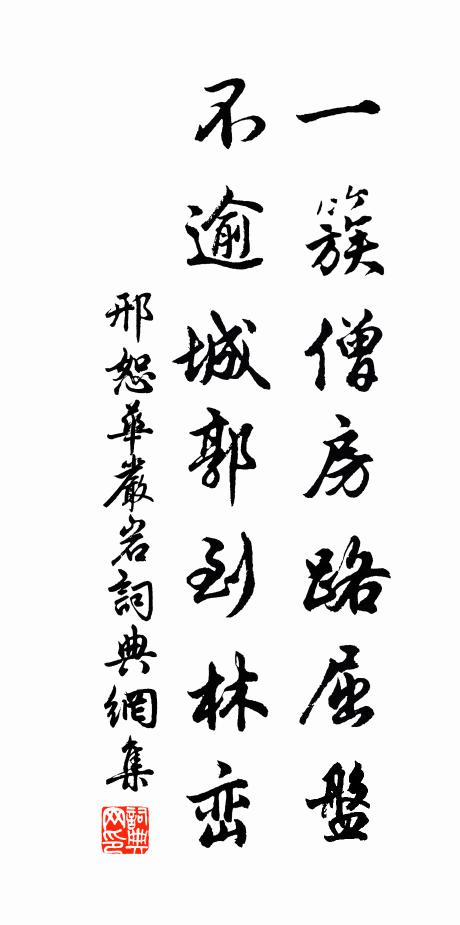 一簇僧房路屈盤
不逾城郭到林峦
邢恕華嚴岩詞典網集
詞典网印